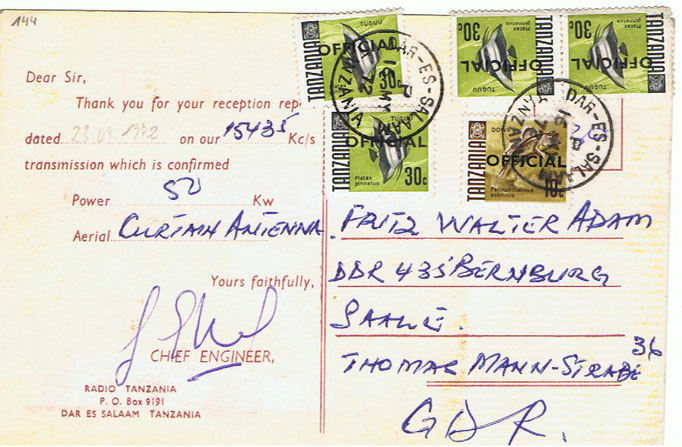 144
Dear Sir,
Thank you for your reception rep
dated 23.04.1972 on our 15435 Kc/s
transmission which is confirmed
Power 50 Kw
Aerial CURTAIN ANTENNA
Yours faithfully,
CHIEF ENGINEER,
RADIO TANZANIA
P. O. Box 9191
DAR ES SALAAM TANZANIA
TANZANIA
TUGUU
OFFICIAL
30c
DAR-ES-SALAAM
P
16 MY
72
TANZANIA
TANZANIA
OFFICIAL
Platax
pinnatus
30c
TANZANIA
TUGUU
OFFICIAL
Platax
pinnatus
30c
TANZANIA
Platax
pinnatus
30c
TANZANIA
OFFICIAL
10c
DAR-ES-SALAAM
P
TANZANIA
FRITZ WALTER ADAM
DDR 435 BERNBURG
SAALE.
THOMAS MANN-STRAßE 36
GDR.